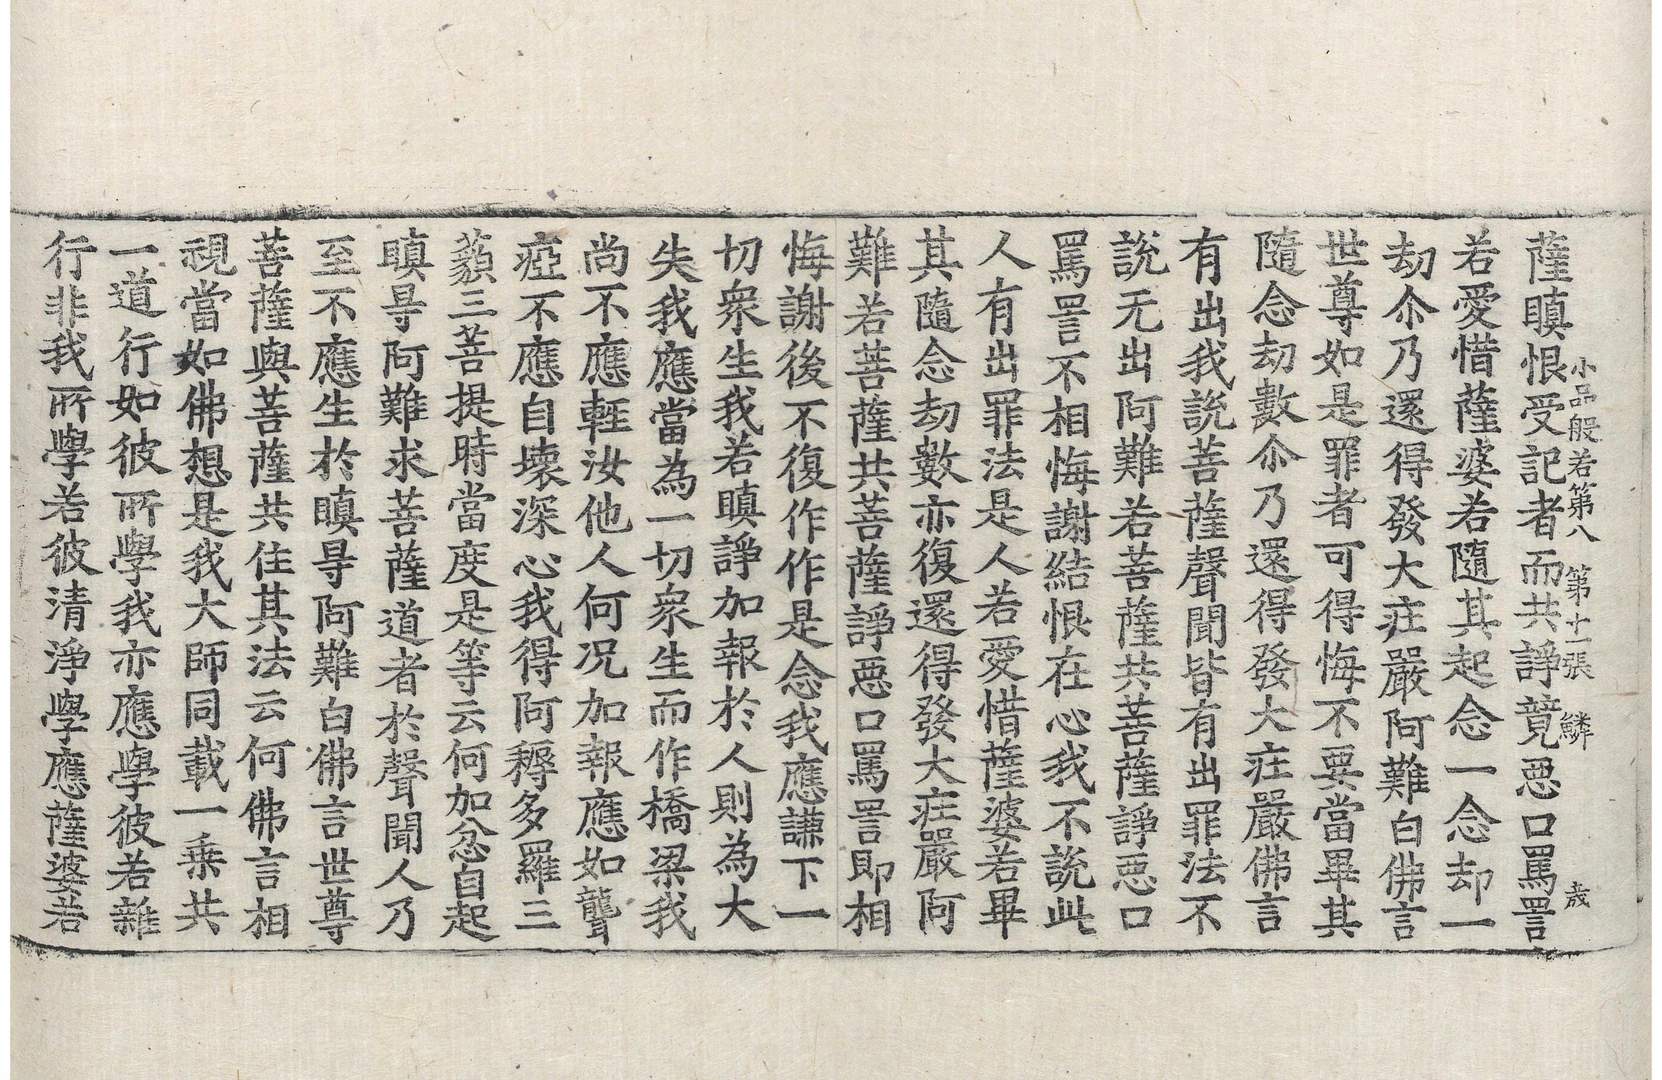 薩瞋恨受記者而共諍競惡口罵詈
小品般若第八 第十一張 鱗 𡻕
若愛惜薩婆若隨其起念一念却一
劫尒乃還得發大疘嚴阿難白佛言
世尊如是罪者可得悔不要當畢其
隨念劫數尒乃還得發大疘嚴佛言
有出我說菩薩聲聞皆有出罪法不
說无出阿難若菩薩共菩薩諍惡口
罵詈不相悔謝結恨在心我不說此
人有出罪法是人若愛惜薩婆若畢
其隨念劫數亦復還得發大疘嚴阿
難若菩薩共菩薩諍惡口罵詈即相
悔謝後不復作作是念我應謙下一
切衆生我若瞋諍加報於人則為大
失我應當為一切衆生而作橋梁我
尚不應輕汝他人何况加報應如聾
瘂不應自壞深心我得阿耨多羅三
藐三菩提時當度是等云何加忿自起
瞋㝵阿難求菩薩道者於聲聞人乃
至不應生於瞋㝵阿難白佛言世尊
菩薩與菩薩共住其法云何佛言相
視當如佛想是我大師同載一乗共
一道行如彼所學我亦應學彼若雜
行非我所學若彼清淨學應薩婆若